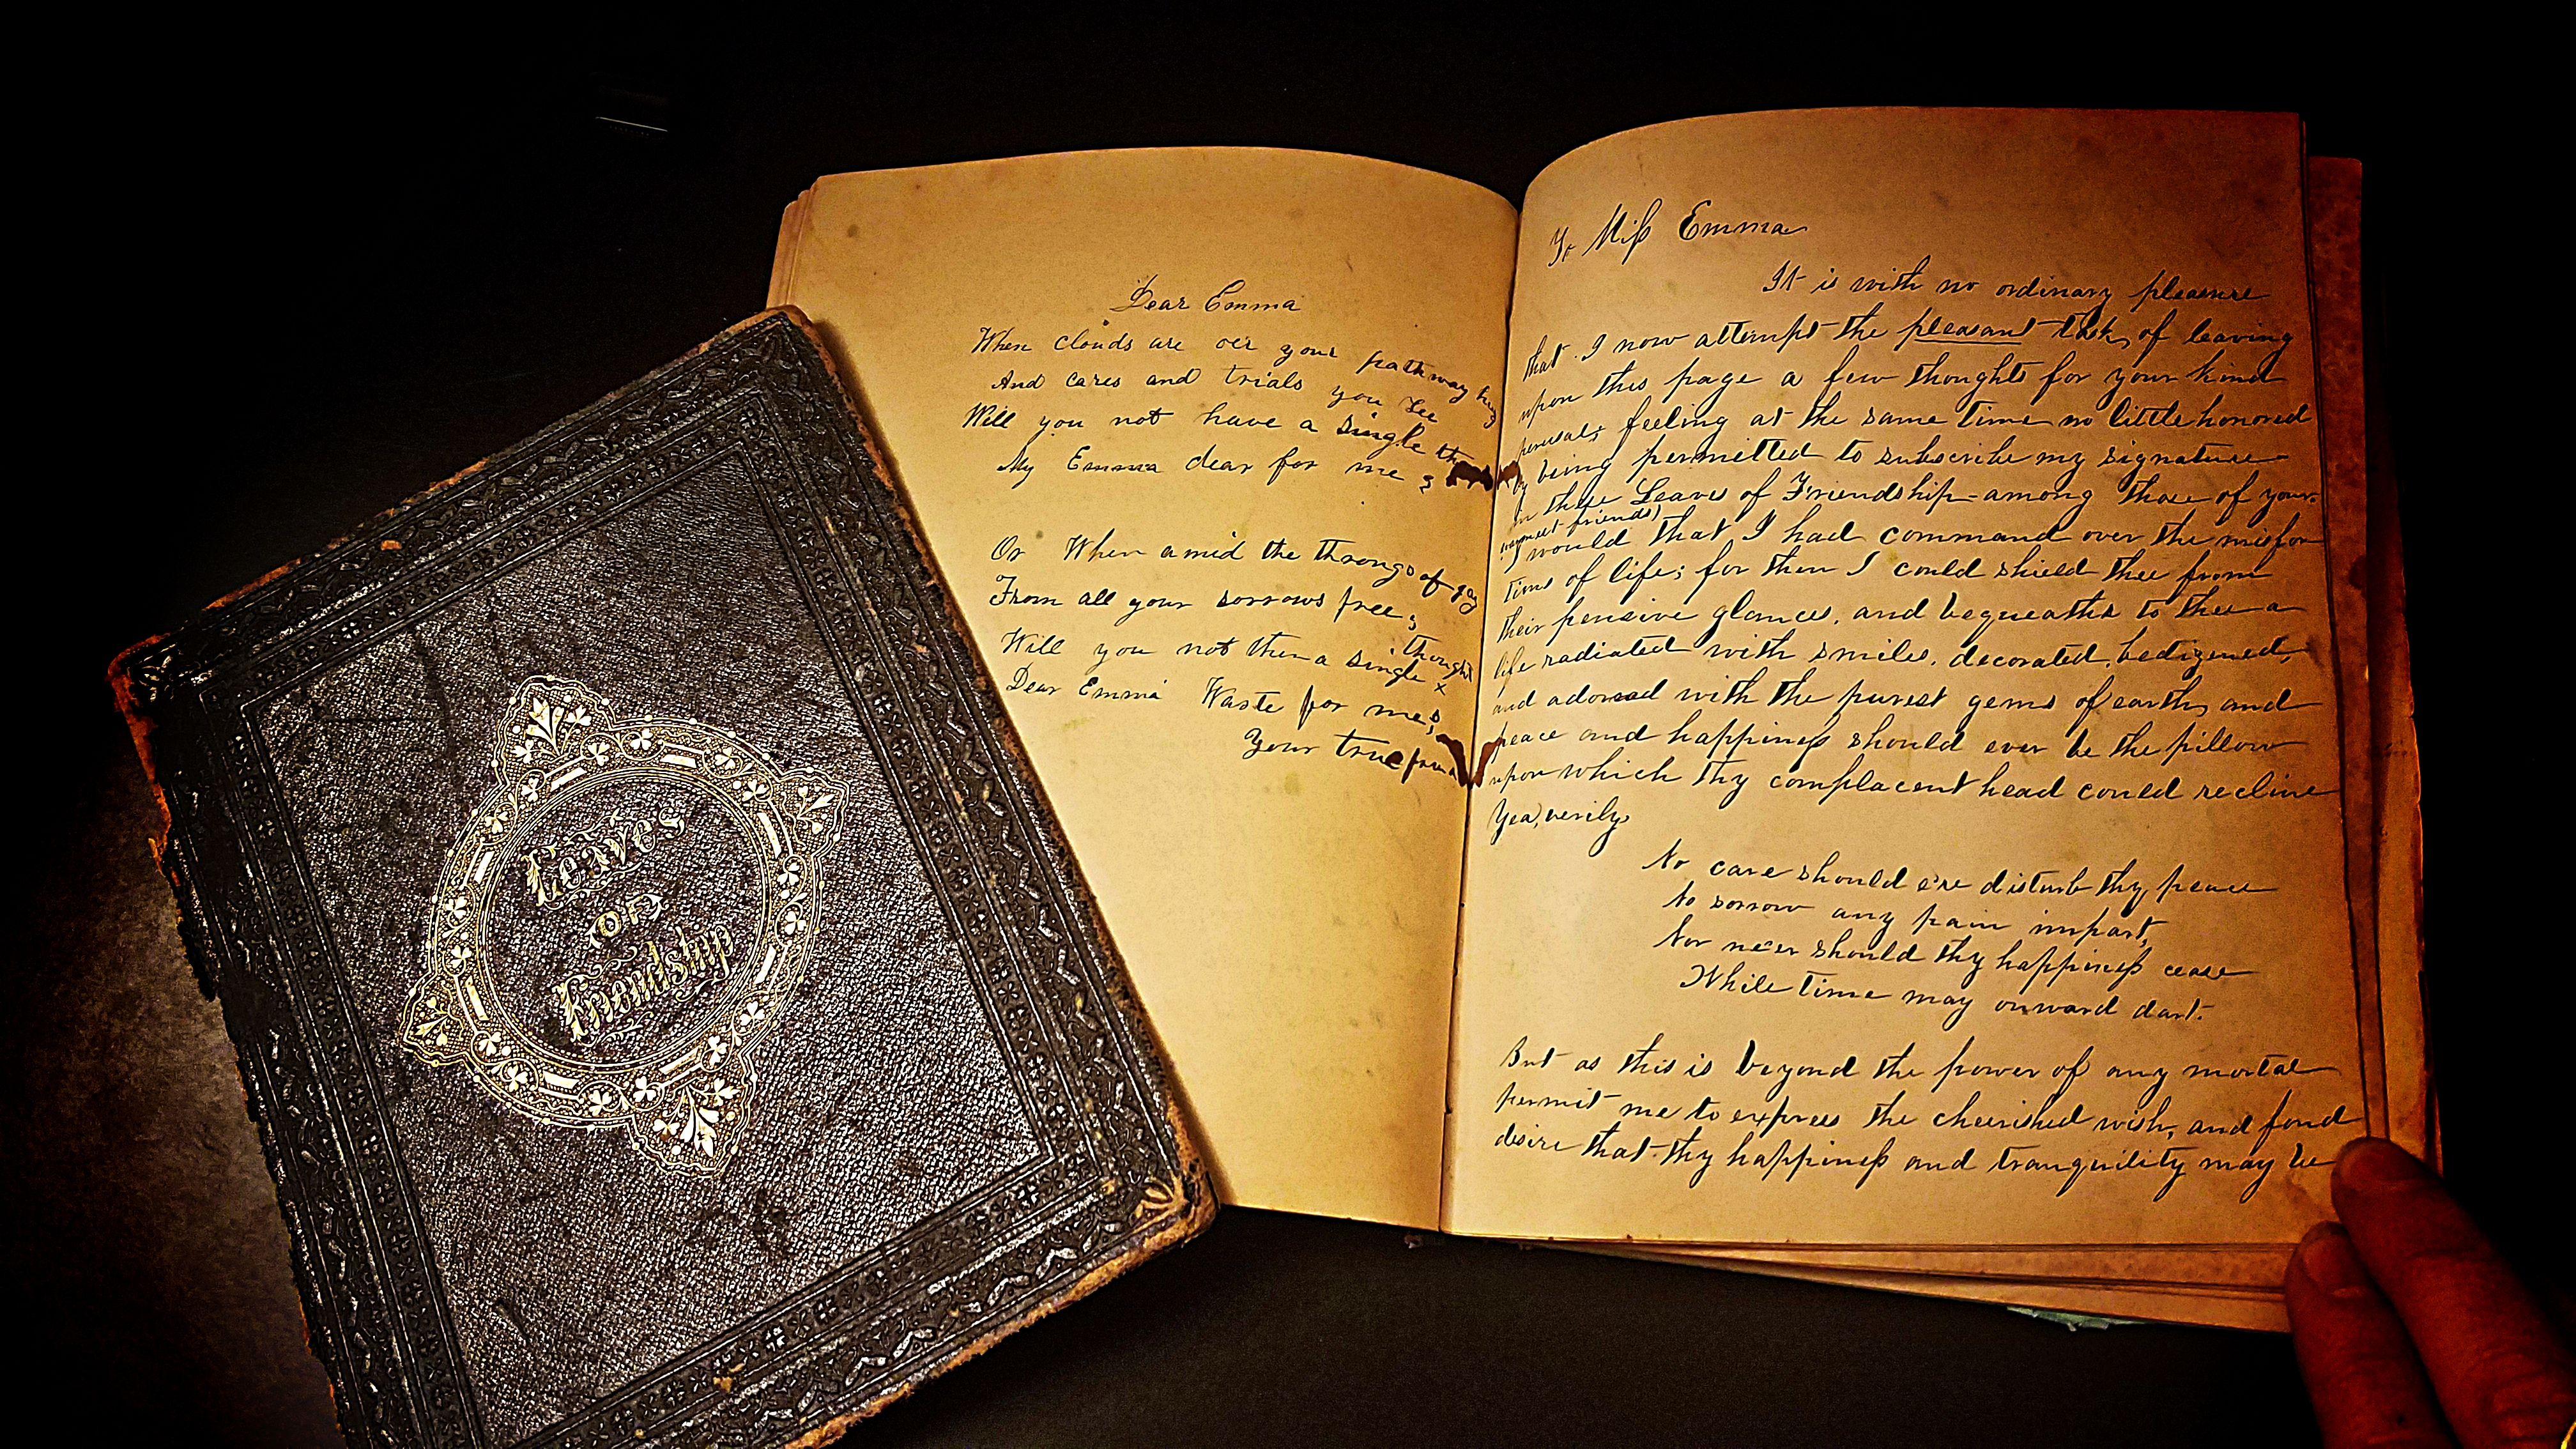 Leaves
of
Friendship
Dear Emma
When clouds are oer your pathway
And cares and trials you see
Will you not have a single
My Emma dear for me ;
Or When amid the throngs of gay
From all your sorrows free ;
Will you not then a single thought
Dear Emma Waste for me ;
Your true
To Miſs Emma
It is with no ordinary pleasure
that I now attempt the pleasant task, of leaving
upon this page a few thoughts for your kind
perusal; feeling at the same time no little honored
by being permitted to subscribe my signature
in these Leaves of Friendship—among those of your
friends)
I would that I had command over the misfor
tunes of life; for then I could shield thee from
their pensive glances, and bequeathe to thee a
life radiated with smiles, decorated, bedizened,
and adorned with the purest gems of earth, and
peace and happineſs should ever be the pillow
upon which thy complacent head could recline
Yea, verily,
No care should e're disturb thy peace
No sorrow any pain impart,
Nor ne'er should thy happineſs cease
While time may onward dart.
But as this is beyond the power of any mortal
permit me to expreſs the cherished wish, and fond
desire that thy happineſs and tranquility may be